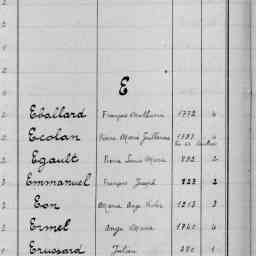 E
Eballard François Mathurin 1772 4
Ecolan Pierre Marie Guillaume 1783 4
Egault Pierre Louis Marie 832 2
Emmanuel François Joseph 823 2
Eon Marie Ange 1213 3
Ermel Ange Marie 1740 4
Erussard Julien 280 1